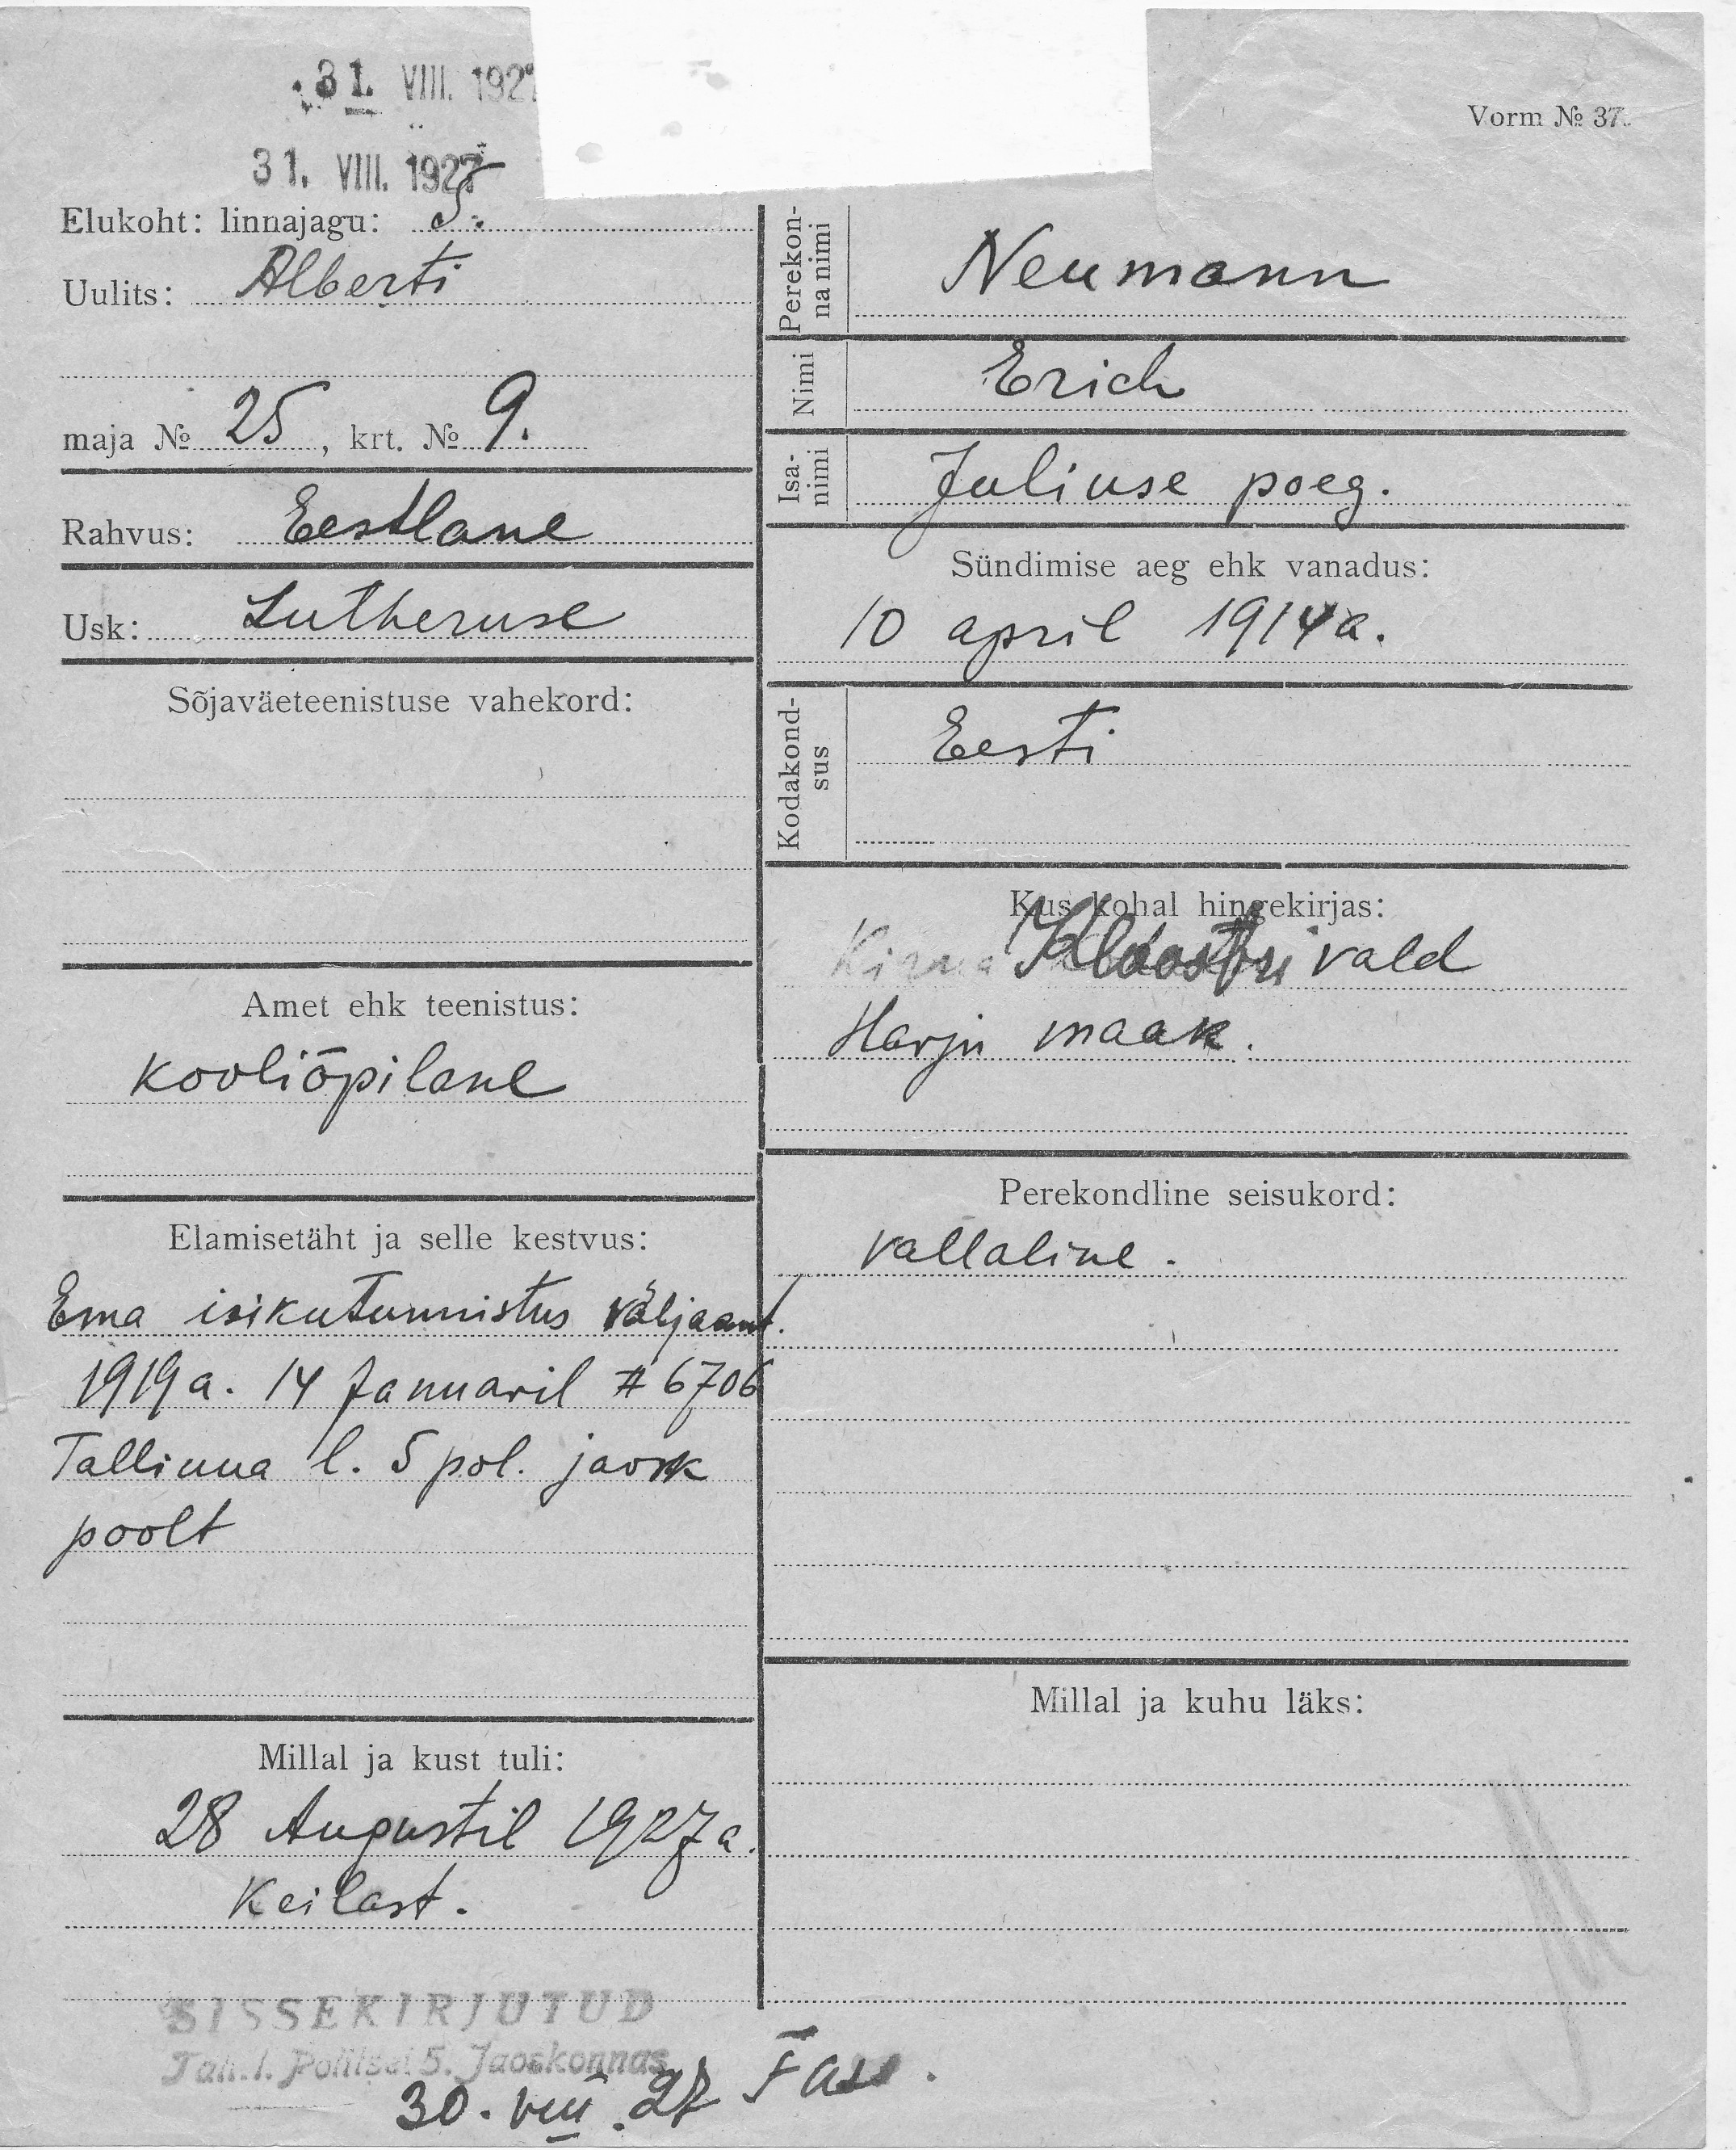 31. VIII. 192
31. VIII. 1927
Vorm № 37.
Elukoht: linnajagu: 5.
Uulits: Alberti
maja № 25, krt. № 9.
Rahvus: Eestlane
Usk: Lutheruse
Sõjaväeteenistuse vahekord:
Amet ehk teenistus:
kooliõpilane
Elamisetäht ja selle kestvus:
Ema isikutunnistus väljaant.
1919 a. 14 Januaril # 6706
Tallinna l. 5 pol. jaosk
poolt
Millal ja kust tuli:
28 Augustil 1927 a.
Keilast.
SISSEKIRJUTUD
Tall. l. Politsei 5. Jaoskonnas
30. VIII. 27
Perekonna nimi
Neumann
Nimi
Erich
Isa-
nimi
Juliuse poeg.
Sündimise aeg ehk vanadus:
10 april 1914 a.
Kodakond-
sus
Eesti
Kus kohal hingekirjas:
Kloostri vald
Harju maak.
Perekondline seisukord:
vallaline.
Millal ja kuhu läks: